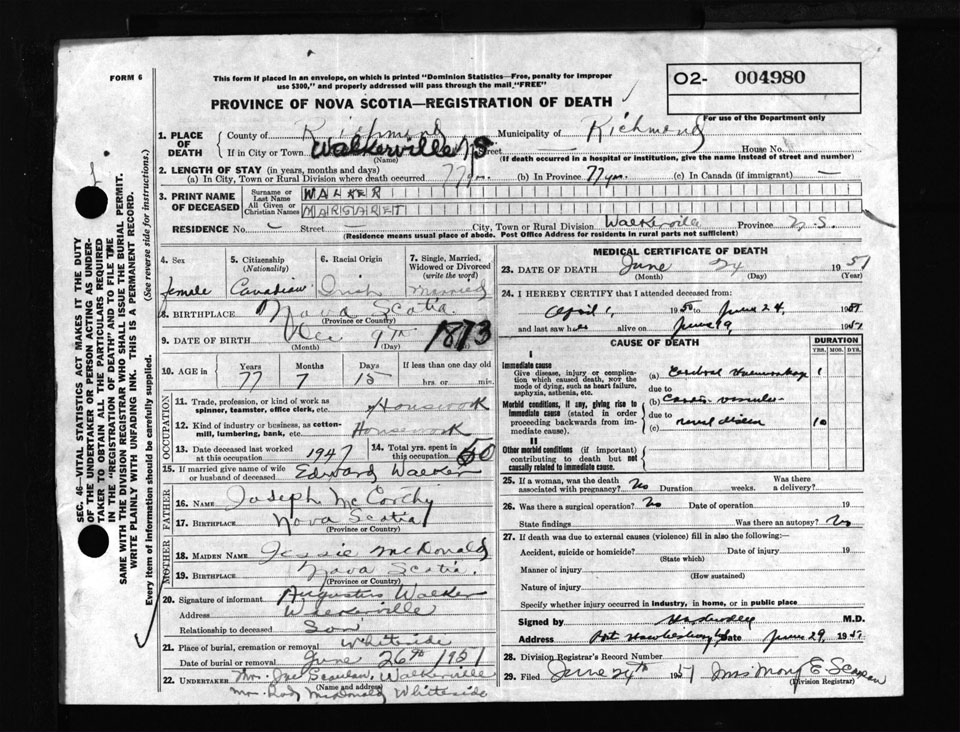 FORM 6
This form if placed in an envelope, on which is printed "Dominion Statistics—Free, penalty for improper
use $300," and properly addressed will pass through the mail "FREE"
O2- 004980
For use of the Department only
PROVINCE OF NOVA SCOTIA—REGISTRATION OF DEATH
1. PLACE OF DEATH
County of Richmond Municipality of Richmond
If in City or Town Walkerville N.S. Street House No.
(Name) (If death occurred in a hospital or institution, give the name instead of street and number)
2. LENGTH OF STAY (in years, months and days)
(a) In City, Town or Rural Division where death occurred 77 yrs. (b) In Province 77 yrs. (c) In Canada (if immigrant) —
3. PRINT NAME OF DECEASED
Surname or Last Name WALKER
All Given or Christian Names MARGARET
RESIDENCE No. — Street — City, Town or Rural Division Walkerville Province N.S.
(Residence means usual place of abode. Post Office Address for residents in rural parts not sufficient)
4. Sex 5. Citizenship (Nationality) 6. Racial Origin 7. Single, Married, Widowed or Divorced (write the word)
female Canadian Irish Married
8. BIRTHPLACE Nova Scotia
(Province or Country)
9. DATE OF BIRTH Dec 9th 1873
(Month) (Day)
10. AGE in Years Months Days If less than one day old
77 7 15 hrs. or min.
OCCUPATION
11. Trade, profession, or kind of work as
spinner, teamster, office clerk, etc. Housework
12. Kind of industry or business, as cotton-
mill, lumbering, bank, etc. Housework
13. Date deceased last worked at this occupation 1947 14. Total yrs. spent in this occupation 50
15. If married give name of wife
or husband of deceased Edward Walker
FATHER
16. NAME Joseph
17. BIRTHPLACE Nova Scotia
(Province or Country)
MOTHER
18. MAIDEN NAME Jessie McDonald
19. BIRTHPLACE Nova Scotia.
(Province or Country)
20. Signature of informant Augustus Walker
Address Walkerville
Relationship to deceased Son
21. Place of burial, cremation or removal Whiteside
Date of burial or removal June 26th 1951
22. UNDERTAKER Mrs. Joe Walkerville
(Name and address)
Mrs. Rody McDonald Whiteside
MEDICAL CERTIFICATE OF DEATH
23. DATE OF DEATH June 24 1951
(Month) (Day) (Year)
24. I HEREBY CERTIFY that I attended deceased from:
April 1, 1950 to June 24, 1951
and last saw her alive on June 19 1951
CAUSE OF DEATH
DURATION
YRS. MOS. DYS.
I
Immediate cause
Give disease, injury or complica-
tion which caused death, NOT the
mode of dying, such as heart failure,
asphyxia, asthenia, etc.
(a) Cerebral Haemorrhage 1
due to
Morbid conditions, if any, giving rise to
immediate cause (stated in order
proceeding backwards from im-
mediate cause).
(b) Cardio vascular
due to
(c) renal disease 10
II
Other morbid conditions (if important)
contributing to death but not
causally related to immediate cause.
25. If a woman, was the death
associated with pregnancy? No Duration weeks. Was there a delivery?
26. Was there a surgical operation? No Date of operation 19
State findings Was there an autopsy? No
27. If death was due to external causes (violence) fill in also the following:—
Accident, suicide or homicide? Date of injury 19
(State which)
Manner of injury
(How sustained)
Nature of injury
Specify whether injury occurred in industry, in home, or in public place
Signed by M.D.
Address Port Hawkesbury Date June 29, 1951
28. Division Registrar's Record Number
29. Filed June 29th 1951 Mrs Mary E.
(Division Registrar)
SEC. 46—VITAL STATISTICS ACT MAKES IT THE DUTY
OF THE UNDERTAKER OR PERSON ACTING AS UNDER-
TAKER TO OBTAIN ALL THE PARTICULARS REQUIRED
IN THE "REGISTRATION OF DEATH" AND TO FILE THE
SAME WITH THE DIVISION REGISTRAR WHO SHALL ISSUE THE BURIAL PERMIT.
WRITE PLAINLY WITH UNFADING INK. THIS IS A PERMANENT RECORD.
Every item of information should be carefully supplied. (See reverse side for instructions.)